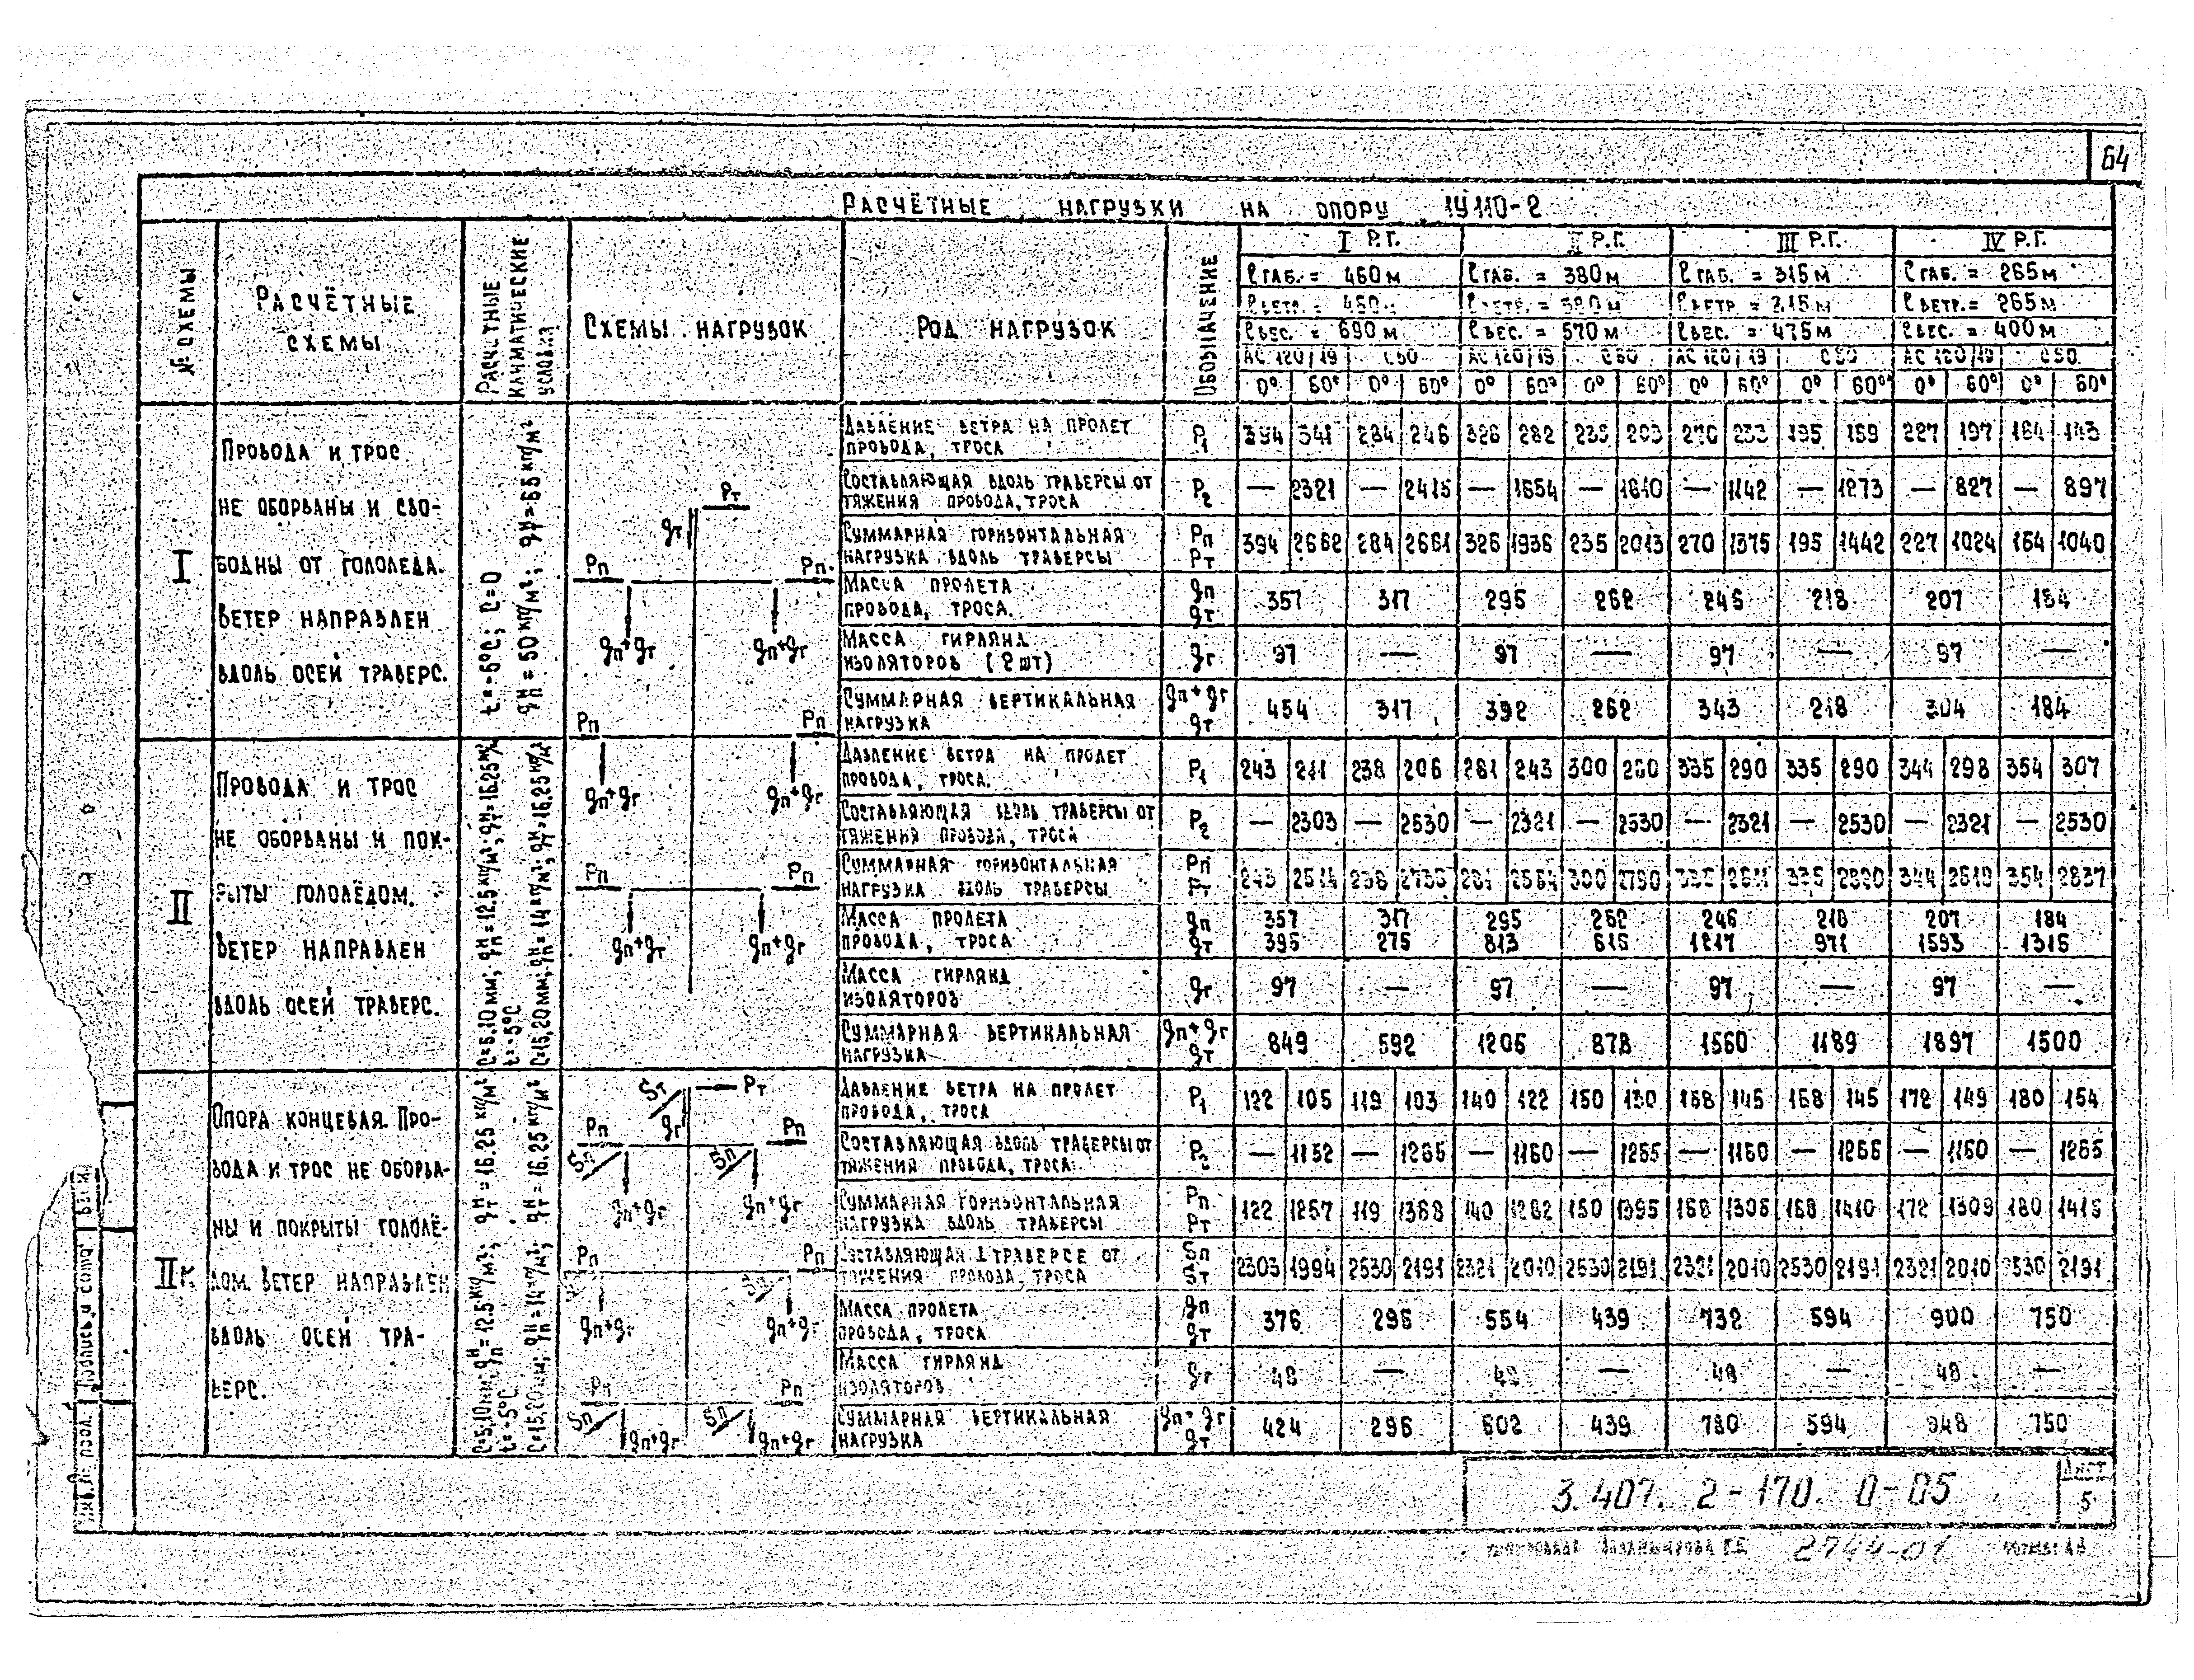 64
РАСЧЁТНЫЕ НАГРУЗКИ НА ОПОРУ 1У110-2
№ СХЕМЫ
РАСЧЁТНЫЕ
СХЕМЫ
РАСЧЕТНЫЕ
КЛИМАТИЧЕСКИЕ
УСЛОВИЯ
СХЕМЫ НАГРУЗОК
РОД НАГРУЗОК
ОБОЗНАЧЕНИЕ
I Р.Г. II Р.Г. III Р.Г. IV Р.Г.
ℓГАБ. = 460 м ℓГАБ. = 380 м ℓГАБ. = 315 м ℓГАБ. = 265 м
ℓВЕТР. = 460 ℓВЕТР. = 380 м ℓВЕТР. = 315 м ℓВЕТР. = 265 м
ℓВЕС. = 690 м ℓВЕС. = 570 м ℓВЕС. = 475 м ℓВЕС. = 400 м
АС 120/19 С50 АС 120/19 С50 АС 120/19 С50 АС 120/19 С50
0° 60° 0° 60° 0° 60° 0° 60° 0° 60° 0° 60° 0° 60° 0° 60°
I
ПРОВОДА И ТРОС
НЕ ОБОРВАНЫ И СВО-
БОДНЫ ОТ ГОЛОЛЕДА.
ВЕТЕР НАПРАВЛЕН
ВДОЛЬ ОСЕЙ ТРАВЕРС.
t=-5°C; C=0
qнп = 50 кг/м²; qнт = 65 кг/м²
Pт
gт
Pп Pп
gп+gг gп+gг
Pп Pп
ДАВЛЕНИЕ ВЕТРА НА ПРОЛЕТ
ПРОВОДА, ТРОСА P1 394 341 284 246 326 282 235 203 270 233 195 169 227 197 164 143
СОСТАВЛЯЮЩАЯ ВДОЛЬ ТРАВЕРСЫ ОТ
ТЯЖЕНИЯ ПРОВОДА, ТРОСА P2 — 2321 — 2415 — 1654 — 1810 — 1142 — 1273 — 827 — 897
СУММАРНАЯ ГОРИЗОНТАЛЬНАЯ Pп
НАГРУЗКА ВДОЛЬ ТРАВЕРСЫ Pт 394 2662 284 2661 326 1936 235 2013 270 1375 195 1442 227 1024 164 1040
МАССА ПРОЛЕТА gп
ПРОВОДА, ТРОСА. gт 357 317 295 262 246 218 207 184
МАССА ГИРЛЯНД
ИЗОЛЯТОРОВ (2 ШТ) gг 97 — 97 — 97 — 97 —
СУММАРНАЯ ВЕРТИКАЛЬНАЯ gп+gг
НАГРУЗКА gт 454 317 392 262 343 218 304 184
II
ПРОВОДА И ТРОС
НЕ ОБОРВАНЫ И ПОК-
РЫТЫ ГОЛОЛЁДОМ.
ВЕТЕР НАПРАВЛЕН
ВДОЛЬ ОСЕЙ ТРАВЕРС.
C=5,10 мм; qнп=12.5 кг/м²; qнт=16.25 кг/м²
t=-5°C
C=15,20 мм; qнп=14 кг/м²; qнт=16.25 кг/м²
gп+gг gп+gг
Pп Pп
gп+gг gп+gг
ДАВЛЕНИЕ ВЕТРА НА ПРОЛЕТ
ПРОВОДА, ТРОСА. P1 243 211 238 206 281 243 300 260 335 290 335 290 344 298 354 307
СОСТАВЛЯЮЩАЯ ВДОЛЬ ТРАВЕРСЫ ОТ
ТЯЖЕНИЯ ПРОВОДА, ТРОСА P2 — 2303 — 2530 — 2321 — 2530 — 2321 — 2530 — 2321 — 2530
СУММАРНАЯ ГОРИЗОНТАЛЬНАЯ Pп
НАГРУЗКА ВДОЛЬ ТРАВЕРСЫ Pт 243 2514 238 2736 281 2564 300 2790 335 2611 335 2820 344 2619 354 2837
МАССА ПРОЛЕТА gп 357 317 295 262 246 218 207 184
ПРОВОДА, ТРОСА gт 395 275 813 616 1217 971 1593 1316
МАССА ГИРЛЯНД
ИЗОЛЯТОРОВ gг 97 — 97 — 97 — 97 —
СУММАРНАЯ ВЕРТИКАЛЬНАЯ gп+gг
НАГРУЗКА gт 849 592 1205 878 1560 1189 1897 1500
IIк
ОПОРА КОНЦЕВАЯ. ПРО-
ВОДА И ТРОС НЕ ОБОРВА-
НЫ И ПОКРЫТЫ ГОЛОЛЁ-
ДОМ. ВЕТЕР НАПРАВЛЕН
ВДОЛЬ ОСЕЙ ТРА-
ВЕРС.
C=5,10 мм; qнп = 12.5 кг/м²; qнт = 16.25 кг/м²
t=-5°C
C=15,20 мм; qнп = 14 кг/м²; qнт = 16.25 кг/м²
Sт Pт
gт
Pп Pп
Sп Sп
gп+gг gп+gг
Pп Pп
gп+gг gп+gг
Pп Pп
Sп Sп
gп+gг gп+gг
ДАВЛЕНИЕ ВЕТРА НА ПРОЛЕТ
ПРОВОДА, ТРОСА P1 122 105 119 103 140 122 150 130 168 145 168 145 172 149 180 154
СОСТАВЛЯЮЩАЯ ВДОЛЬ ТРАВЕРСЫ ОТ
ТЯЖЕНИЯ ПРОВОДА, ТРОСА P2 — 1152 — 1265 — 1160 — 1265 — 1160 — 1265 — 1160 — 1265
СУММАРНАЯ ГОРИЗОНТАЛЬНАЯ Pп
НАГРУЗКА ВДОЛЬ ТРАВЕРСЫ Pт 122 1257 119 1368 140 1282 150 1395 168 1305 168 1410 172 1309 180 1415
СОСТАВЛЯЮЩАЯ ⊥ ТРАВЕРСЕ ОТ Sп
ТЯЖЕНИЯ ПРОВОДА, ТРОСА Sт 2303 1994 2530 2191 2321 2010 2530 2191 2321 2010 2530 2191 2321 2010 2530 2191
МАССА ПРОЛЕТА gп
ПРОВОДА, ТРОСА gт 376 296 554 439 732 594 900 750
МАССА ГИРЛЯНД
ИЗОЛЯТОРОВ gг 48 — 48 — 48 — 48 —
СУММАРНАЯ ВЕРТИКАЛЬНАЯ gп+gг
НАГРУЗКА gт 424 296 602 439 780 594 948 750
3.407. 2-170. 0-05
Лист
5
Инв.№ подл. Подпись и дата
2744-01